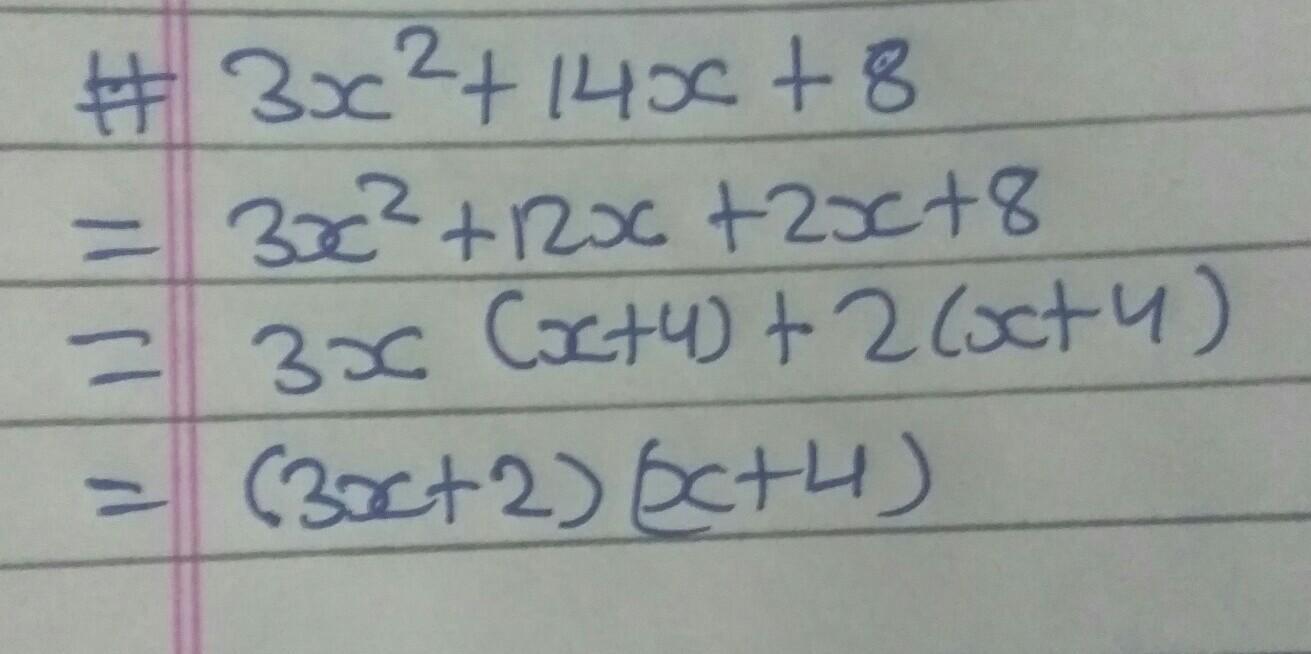 # 3x² + 14x + 8
= 3x² + 12x + 2x + 8
= 3x (x+4) + 2(x+4)
= (3x+2) (x+4)